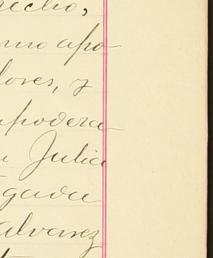 recho,
omo apo-
lores, y
apodera-
a Julia
gada
alvarez